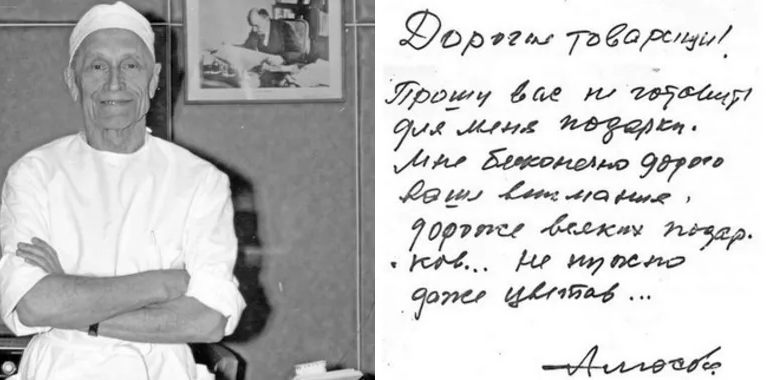 Дорогие товарищи!
Прошу вас не готовить
для меня подарки.
Мне бесконечно дорого
ваше внимание,
дороже всяких подар-
ков... Не нужно
даже цветов...
Амосов